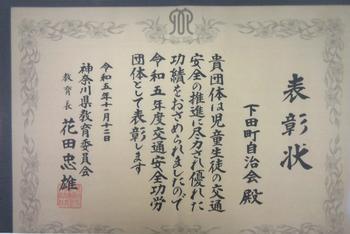 表彰状
下田町自治会殿
貴団体は児童生徒の交通
安全の推進に尽力され優れた
功績をおさめられましたので
令和五年度交通安全功労
団体として表彰します
令和五年十二月十二日
神奈川県教育委員会
教育長 花田忠雄